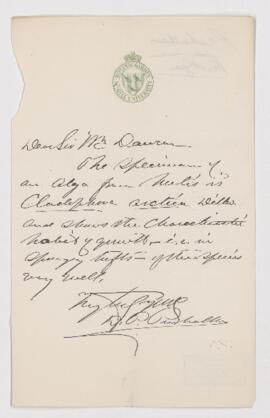 Dear Sir Wm Dawson
The specimen of
an alga from Metis is
Cladophora arctica Dillw
and shows the characteristic
habit of growth – i.e. in
spongy tufts – of the species
very well.
D. P. Penhallow